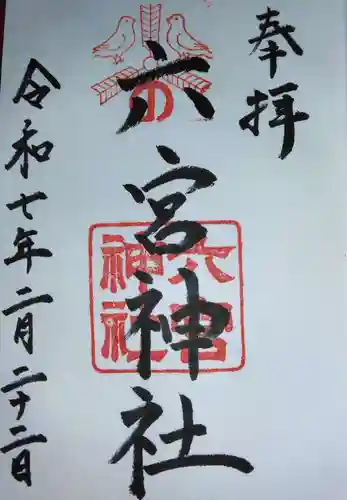 奉拝
六宮神社
六宮神社
令和七年二月二十二日